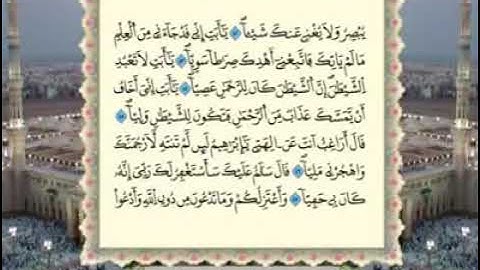 يُبْصِرُ وَلَا يُغْنِي عَنكَ شَيْئًا ۝ يَٰٓأَبَتِ إِنِّي قَدْ جَآءَنِي مِنَ ٱلْعِلْمِ
مَا لَمْ يَأْتِكَ فَٱتَّبِعْنِيٓ أَهْدِكَ صِرَٰطًا سَوِيًّا ۝ يَٰٓأَبَتِ لَا تَعْبُدِ
ٱلشَّيْطَٰنَ إِنَّ ٱلشَّيْطَٰنَ كَانَ لِلرَّحْمَٰنِ عَصِيًّا ۝ يَٰٓأَبَتِ إِنِّيٓ أَخَافُ
أَن يَمَسَّكَ عَذَابٌ مِّنَ ٱلرَّحْمَٰنِ فَتَكُونَ لِلشَّيْطَٰنِ وَلِيًّا ۝
قَالَ أَرَاغِبٌ أَنتَ عَنْ ءَالِهَتِي يَٰٓإِبْرَٰهِيمُ لَئِن لَّمْ تَنتَهِ لَأَرْجُمَنَّكَ
وَٱهْجُرْنِي مَلِيًّا ۝ قَالَ سَلَٰمٌ عَلَيْكَ سَأَسْتَغْفِرُ لَكَ رَبِّيٓ إِنَّهُۥ
كَانَ بِي حَفِيًّا ۝ وَأَعْتَزِلُكُمْ وَمَا تَدْعُونَ مِن دُونِ ٱللَّهِ وَأَدْعُوا۟